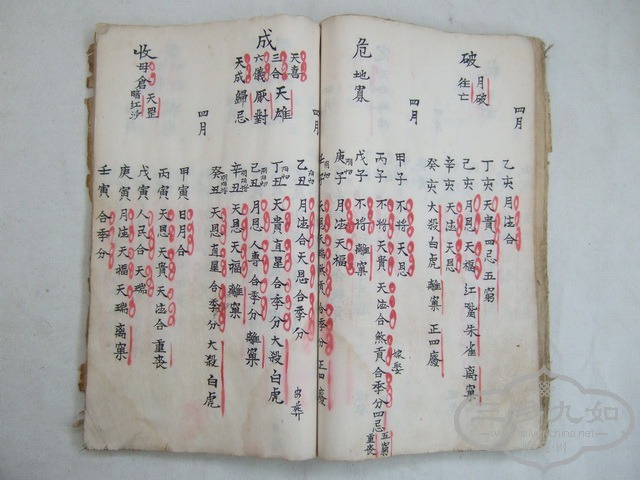 破
月破
往亡
四月
乙亥 月德合
丁亥 天貴 四忌 五窮
己亥 月恩 天福 紅鸞 朱雀 離窠
辛亥 天德 天恩
癸亥 大殺白虎 正四廢
危
地寡
四月
甲子 不將 天恩
丙子 不將 天貴 天德合 煞貢 合季分 四忌 五窮 重喪
嫁娶
戊子 不將 離窠
庚子 月德 天福
壬子 合季分 正四廢
成
天喜
三合
六儀
天成
天雄
厭對
歸忌
四月
乙丑 月德合 天恩 合季分
丁丑 天貴 直星 合季分 大殺白虎
己丑 月恩 人專 合季分 離窠
辛丑 天恩 天福 離窠
癸丑 天恩 直星 合季分 大殺白虎
收
母倉
天罡
暗紅沙
四月
甲寅 日月合
丙寅 天恩 天貴 天德合 重喪
戊寅 人民合 天瑞
庚寅 月德 天福 天瑞 离窠
壬寅 合季分